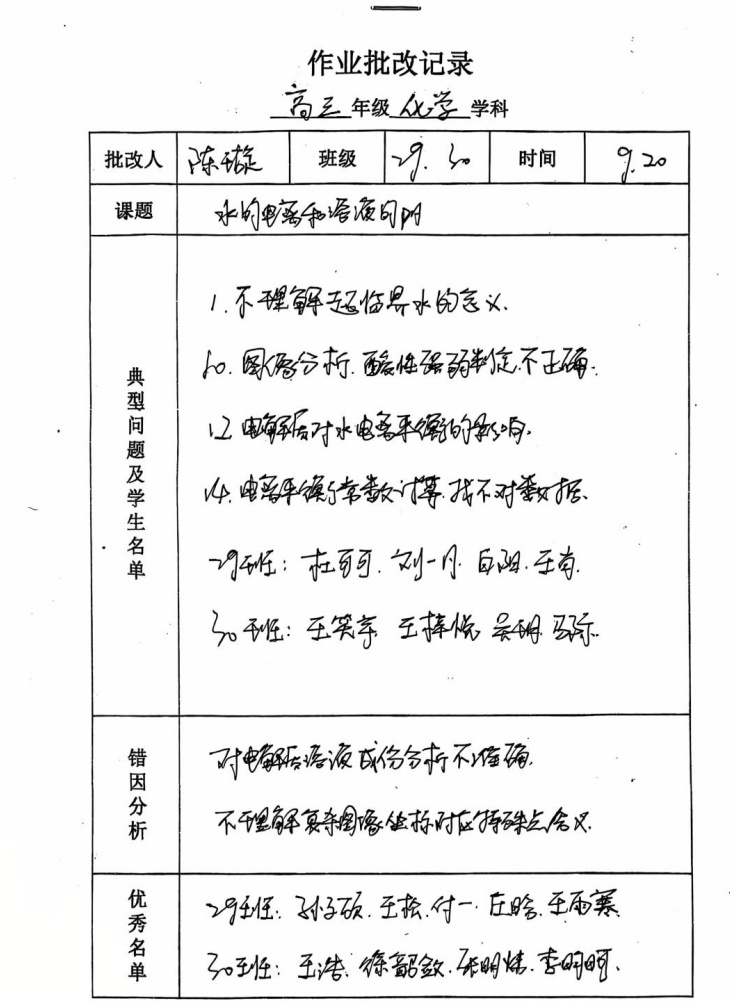 作业批改记录
高三 年级 化学 学科
批改人 陈璇 班级 29. 30 时间 9.20
课题 水的电离和溶液的pH
典型问题及学生名单
1. 不理解超临界水的含义.
10. 图像分析. 酸性强弱判定不正确.
12 电解后对水电离平衡的影响.
14. 电离平衡与常数计算. 找不对数据.
29班: 杜可可. 刘一凡. 白阳. 王南.
30班: 王笑亭 王梓悦 吴玥.
错因分析
对电解后溶液成份分析不准确.
不理解复杂图像坐标对应特殊点含义.
优秀名单
29班: 孙子硕. 王桧. 付一. 庄晗. 王雨寒
30班: 王浩. 徐韶歆. 张明炜. 李明明.